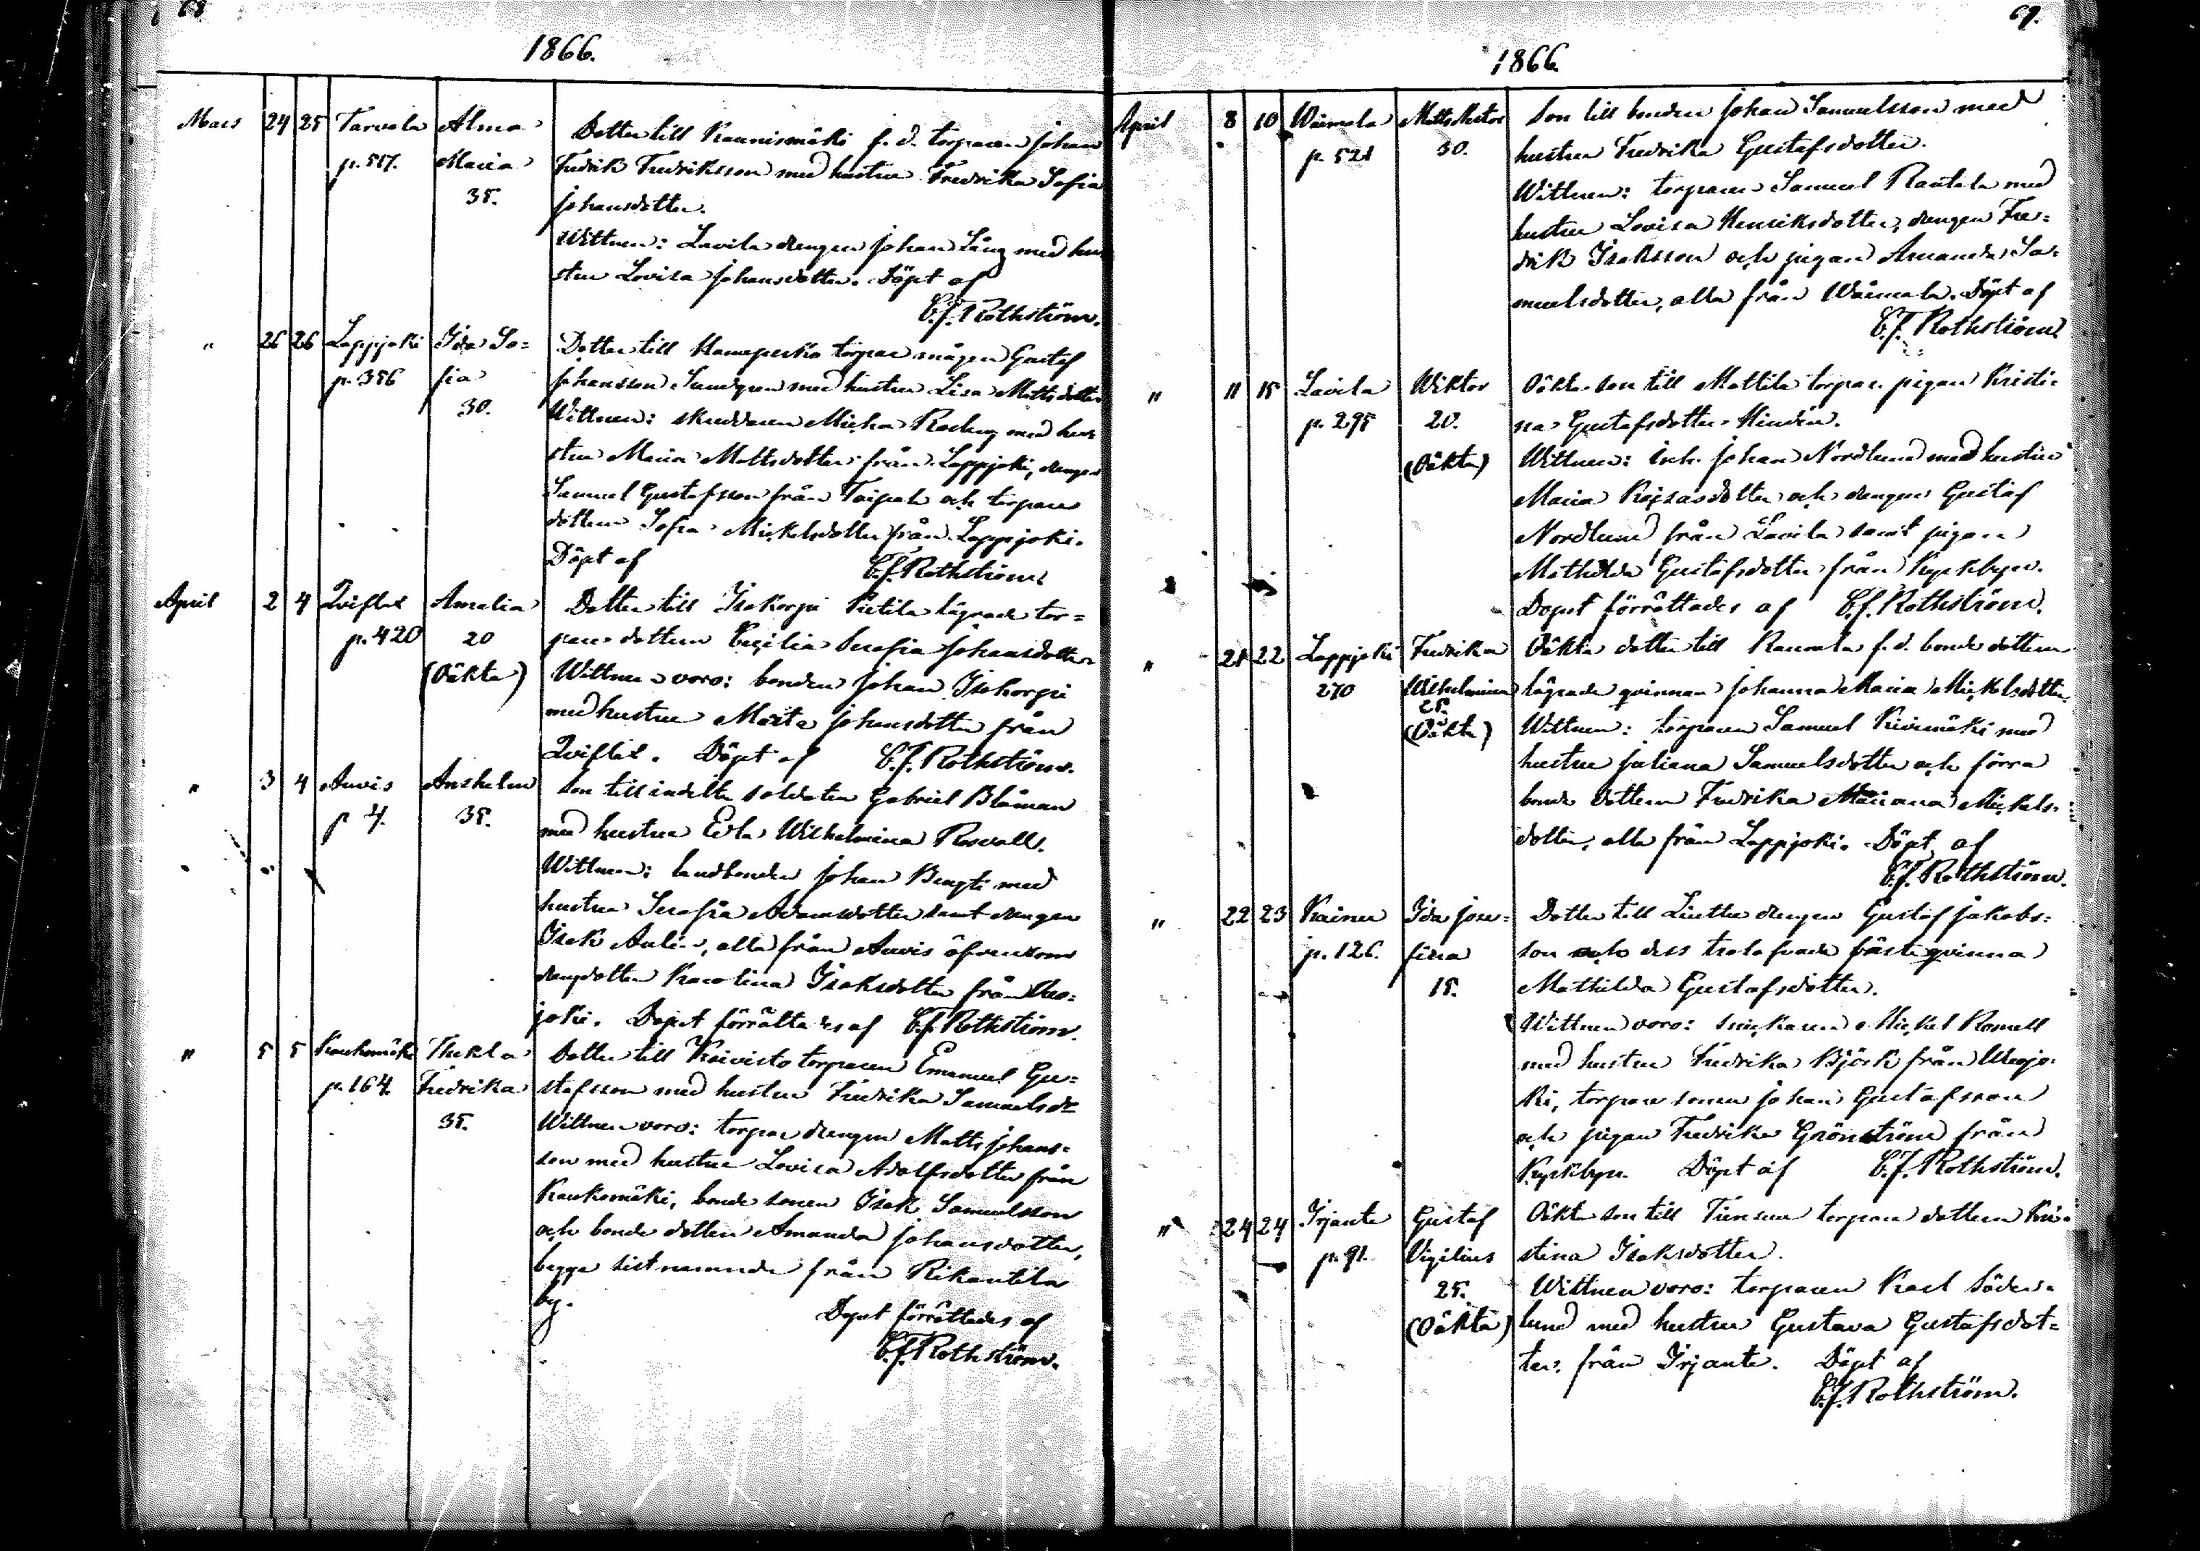 68
1866.
Mars 24 25 Tarvola p. 517. Alma Maria 35.
Dotter till Kaunismäki f. d. torparen Johan
Fredrik Fredriksson med hustru Fredrika Sofia
Johansdotter.
Wittnen: Lavila drengen Johan Lång med hu
stru Lovisa Johansdotter. Döpt af
C.J. Rothström.
" 26 26 Lappjoki p. 356 Ida So=
fia 30.
Dotter till torpare mågen Gustaf
Johansson Sundgren med hustru Lisa Mattsdotter
Wittnen: skreddaren Michn Rosberg med hu
stru Maria Mattsdotter från Lappjoki, drengen
Samuel Gustafsson från Taipale och torpare
dottern Sofia Mickelsdotter från Lappjoki.
Döpt af C.J. Rothström.
April 2 4 Qviflax p. 420 Amalia 20 (Oäkta)
Dotter till Isokorpi Pietila lägrade tor=
pare dottern Cecilia Serafia Johansdotter
Wittnen voro: bonden Johan Isokorpi
med hustru Maria Johansdotter från
Qviflax. Döpt af C.J. Rothström.
" 3 4 Auvis p 4. Anshelm 35.
Son till indelta soldaten Gabriel Blåman
med hustru Eva Wilhelmina Roswall.
Wittnen: landbonden Johan Bengts med
hustru Serafia Adamsdotter samt drengen
Isak Aulin, alla från Auvis äfvensom
drengdottern Karolina Isaksdotter från Uro=
joki. Dopet förrättades af C.J. Rothström.
" 5 5 Kaukomäki p. 164. Thekla
Fredrika
35.
Dotter till Koivisto torparen Emanuel Gu=
stafsson med hustru Fredrika Samuelsdr
Wittnen voro: torpare drengen Matts Johans=
son med hustru Lovisa Adolfsdotter från
Kaukomäki, bonde sonen Isak Samuelsson
och bonde dottern Amanda Johansdotter,
begge sistnemnde från Rikantila
by. Dopet förrättades af
C.J. Rothström.
69.
1866.
April 8 10 Wäimala p. 521 Matts Nestor 30.
Son till bonden Johan Samuelsson med
hustru Fredrika Gustafsdotter.
Wittnen: torparen Samuel Rautala med
hustru Lovisa Henriksdotter, drengen Fre=
drik Isaksson och pigan Amanda Sa=
muelsdotter, alla från Wäimala. Döpt af
C.J. Rothström.
" 11 15 Lavila p. 295 Wiktor 20. (Oäkta)
Oäkta son till Mattila torpare pigan Kristi=
na Gustafsdotter Hindén.
Wittnen: inh. Johan Nordlund med hustru
Maria Kajsasdotter och drengen Gustaf
Nordlund från Lavila samt pigan
Mathilda Gustafsdotter från Kyrkbyn.
Dopet förrättades af C.J. Rothström.
" 21 22 Lappjoki 270 Fredrika
Wilhelmina
25.
(Oäkta)
Oäkta dotter till Raumala f.d. bonde dottern
lägrade qvinnan Johanna Maria Mickelsdotter.
Wittnen: torparen Samuel Kivimäki med
hustru Juliana Samuelsdotter och förra
bonde dottern Fredrika Mariana Mickels=
dotter, alla från Lappjoki. Döpt af
C.J. Rothström.
" 22 23 Kainu p. 126. Ida Jose=
fina
15.
Dotter till Liuttu drengen Gustaf Jakobs=
son och dess trolofvade fästeqvinna
Mathilda Gustafsdotter.
Wittnen voro: snickaren Mickel Romell
med hustru Fredrika Björk från Urojo=
ki, torpare sonen Johan Gustafsson
och pigan Fredrika Grönström från
Kyrkbyn. Döpt af C.J. Rothström.
" 24 24 Irjante p. 91. Gustaf
Vigilius
25.
(Oäkta)
Oäkta son till torpare dottern Kri=
stina Isaksdotter.
Wittnen voro: torparen Karl Söder=
lund med hustru Gustava Gustafsdot=
ter från Irjante. Döpt af
C.J. Rothström.